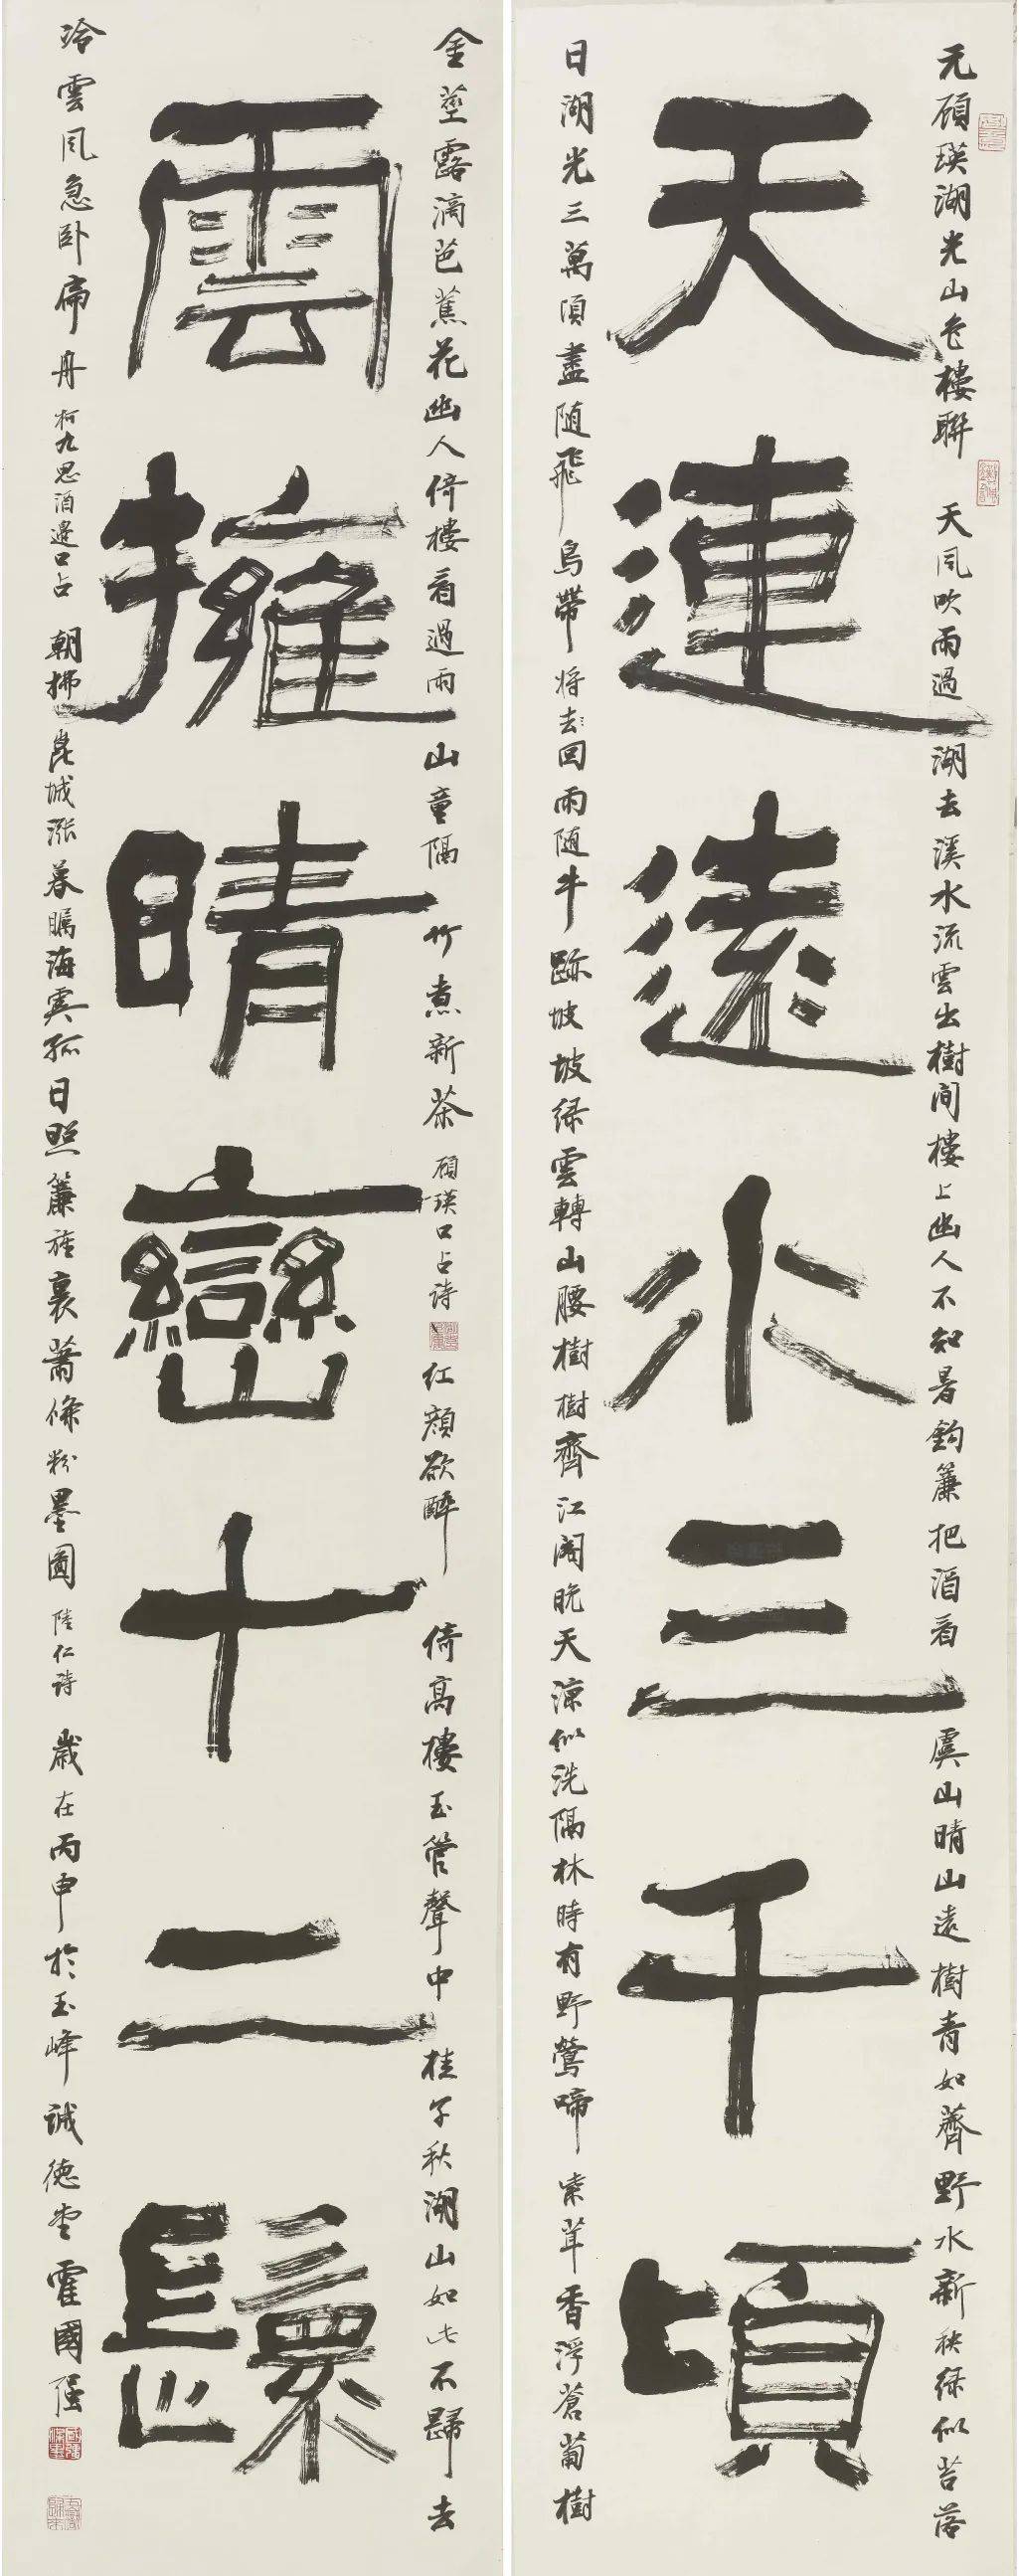 元顾瑛湖光山色樓聯 天風吹雨過湖去溪水流雲出樹间樓上幽人不知暑鈎簾把酒看虞山晴山遠樹青如薺野水新秧绿似苔落
天連遠水三千頃
日湖光三萬頃盡随飛鳥帶将去回雨随牛跡坡坡绿雲轉山腰樹樹齊江閣晚天涼似洗隔林時有野鶯啼紫茸香浮薝蔔樹
金莖露滴芭蕉花幽人倚樓看過雨山童隔竹煮新茶顾瑛口占詩 红顔欲醉倚高樓玉管聲中桂子秋湖山如此不歸去
雲擁晴巒十二鬟
冷雲風急卧扁舟柯九思酒邊口占 朝拂崑城漲暮矚海雲孤日照簾旌裏蕭條粉墨圖陸仁詩 歲在丙申於玉峰誠德堂霍國强